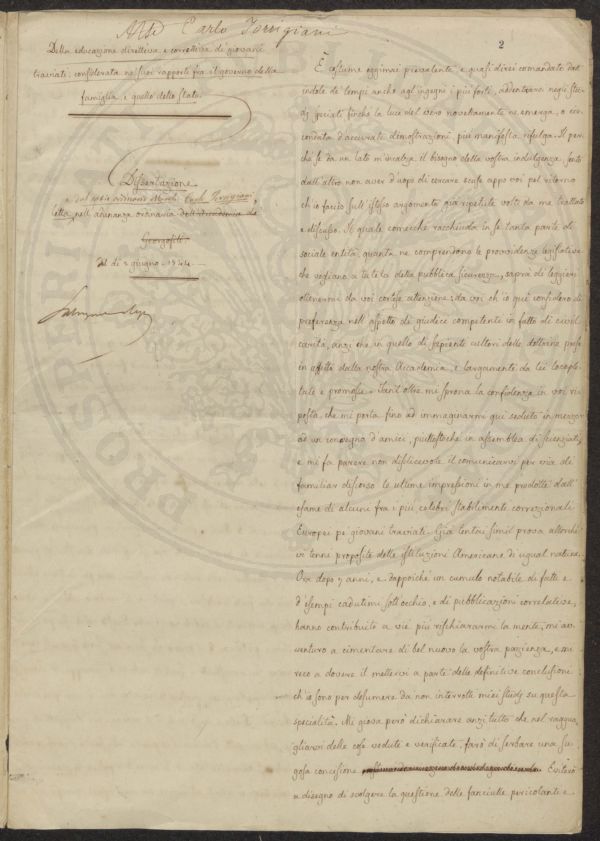 Arse Carlo Torrigiani
2
Della educazione direttiva e correttiva di giovani
traviati, considerata ne' suoi rapporti fra il governo della
famiglia e quello dello Stato.
Dissertazione
del socio Carlo Torrigiani,
letta nell'adunanza ordinaria dell'Accademia de'
Georgofili
del dì 2 giugno 1844
È costume oggimai prevalente e quasi direi comandato dall'
indole de' tempi anche agl'ingegni i più forti, addentrarsi negli stu-
dj speciali finchè la luce del vero novellamente ne emerga, o cir-
condata d'accurate dimostrazioni più manifesta rifulga. Il per-
chè se da un lato m'incalza il bisogno della vostra indulgenza, sento
dall'altro non aver d'uopo di cercare scuse appo voi pel ritorno
ch'io faccio sull'istesso argomento quà ripetute volte da me trattato
e discusso. Il quale comecchè racchiuda in se tanta parte di
sociale entità, quanta ne comprendono le provvidenze legislative
che vegliano a tutela della pubblica sicurezza, saprà di leggieri
ottenermi da voi cortese attenzione; da voi ch'io quì considero di
preferenza nell'aspetto di giudice competente in fatto di civil
carità, anzi che in quello di sapienti cultori delle dottrine prese
in affetto dalla nostra Accademia, e largamente da lei locuple-
tate e promosse. Tant'oltre mi sprona la confidenza in voi ri-
posta, che mi porta fino ad immaginarmi quì seduto in mezzo
ad un convegno d'amici, piuttostochè in assemblea di scienziati,
e mi fa parere non disdicevole il comunicarvi per via di
familiar discorso le ultime impressioni in me prodotte dall'
esame di alcuni fra i più celebri stabilimenti correzionali
Europei pe' giovani traviati. Già tentai simil prova allorchè
vi tenni proposito delle istituzioni Americane di ugual natura.
Ora dopo 7 anni, e dappoichè un cumulo notabile di fatti e
d'esempi cadutimi sott'occhio, e di pubblicazioni correlative,
hanno contribuito a viè più rischiararmi la mente, mi av-
venturo a cimentare di bel nuovo la vostra pazienza, e mi
reco a dovere il mettervi a parte delle definitive conclusioni
ch'io sono per desumere da non interrotti miei studj su questa
specialità. Mi giova però dichiarare anzi tutto che nel raggua-
gliarvi delle cose vedute e verificate, farò di serbare una su-
gosa concisione. Eviterò
a disegno di svolgere la questione delle fanciulle pericolanti e